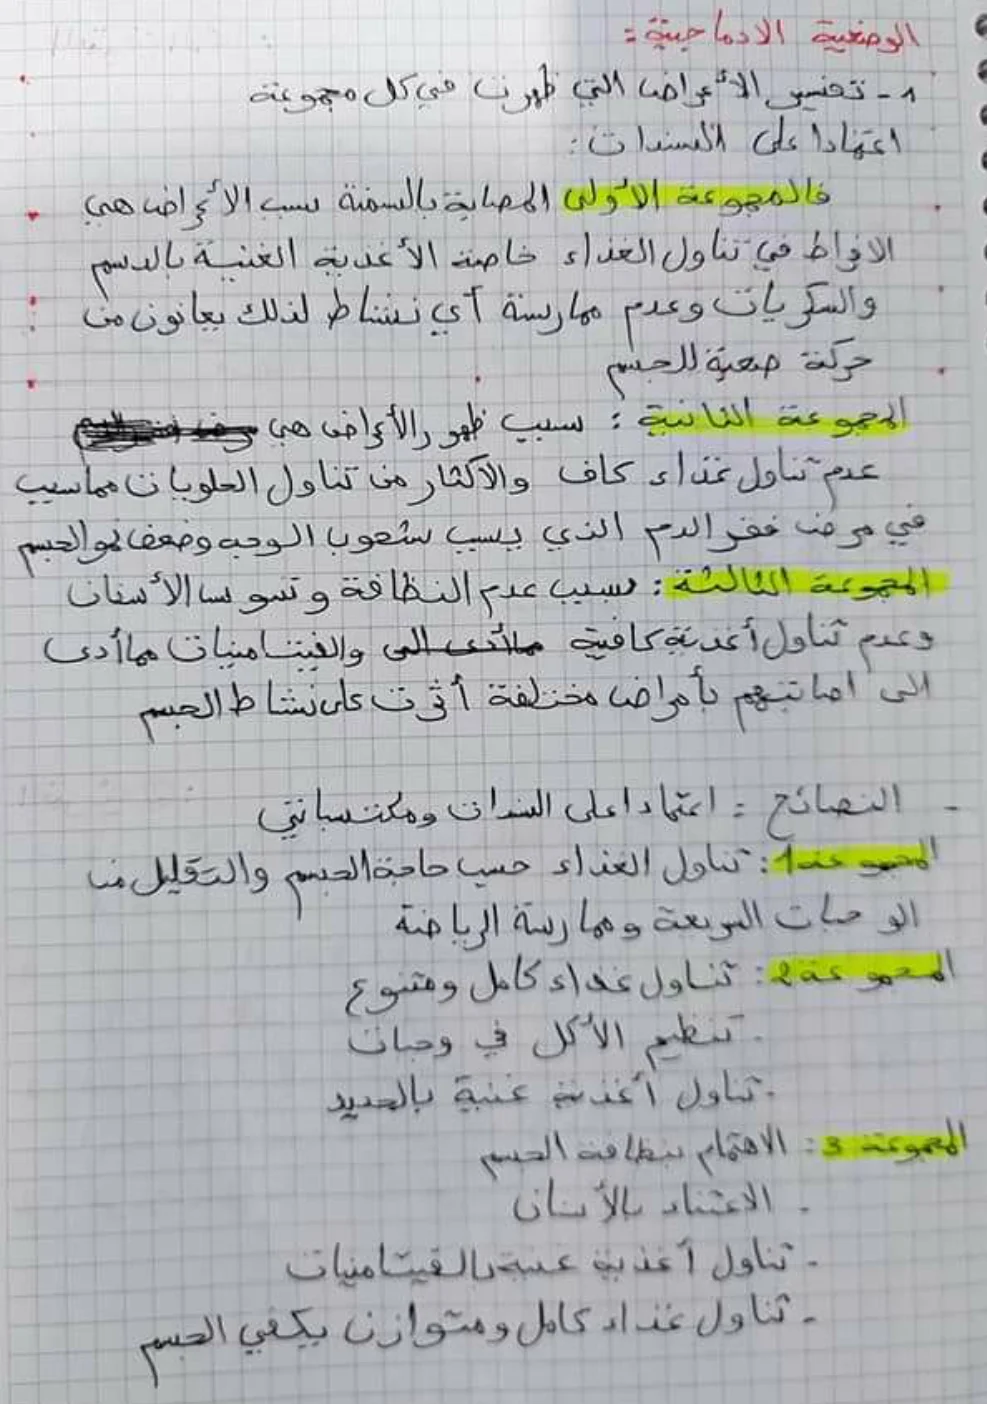 الوضعية الادماجية :
1 - تفسير الأعراض التي ظهرت في كل مجموعة
اعتمادا على السندات :
فالمجموعة الأولى المصابة بالسمنة سبب الأعراض هي
الافراط في تناول الغذاء خاصة الأغذية الغنية بالدسم
والسكريات وعدم ممارسة أي نشاط لذلك يعانون من
حركة صعبة للجسم
المجموعة الثانية : سبب ظهور الأعراض هي
عدم تناول غذاء كاف والاكثار من تناول الحلويات مماسبب
في مرض فقر الدم الذي يسبب شحوب الوجه وضعف نمو الجسم
المجموعة الثالثة : بسبب عدم النظافة و تسوس الأسنان
وعدم تناول أغذية كافية مماأدى الى والفيتامنيات مماأدى
الى اصابتهم بأمراض مختلفة أثرت على نشاط الجسم
- النصائح : اعتمادا على السندات ومكتسباتي
المجموعة 1 : تناول الغذاء حسب حاجة الجسم والتقليل من
الوجبات السريعة وممارسة الرياضة
المجموعة 2 : تناول غذاء كامل ومتنوع
. تنظيم الأكل في وجبات
. تناول أغذية غنية بالحديد
المجموعة 3 : الاهتمام بنظافة الجسم
. الاعتناء بالأسنان
- تناول أغذية غنية بالفيتامنيات
- تناول غذاء كامل ومتوازن يكفي الجسم